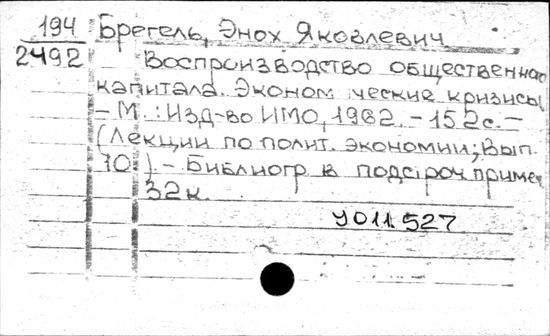 194 Брегель, Энох Яковлевич
2492 Воспроизводство общественног
капитала. Эконом ческие кризисы
- М.: Изд-во ИМО, 1962. - 152с. -
(Лекции по полит. экономии; Вып.
10). - Библиогр в подстроч примеч
32к.
У011527